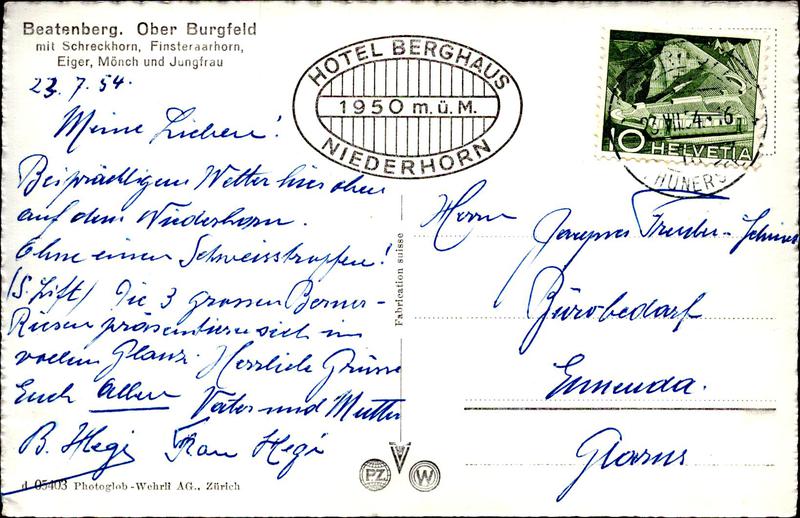 Beatenberg. Ober Burgfeld
mit Schreckhorn, Finsteraarhorn,
Eiger, Mönch und Jungfrau
23.7.54.
Meine Lieben!
Bei prächtigem Wetter hier oben
auf dem Niederhorn.
Ohne einen Schweisstropfen!
(S. Lift) Die 3 grossen Berner-
Riesen präsentieren sich im
vollem Glanz. Herzliche Grüsse
Euch allen Vater und Mutter
B. Hegi Frau Hegi
d 05403 Photoglob-Wehrli AG., Zürich
HOTEL BERGHAUS
1950 m.ü.M.
NIEDERHORN
Fabrication suisse
PZ
W
10 HELVETIA
Herrn
Bürobedarf
Ennenda.
Glarus